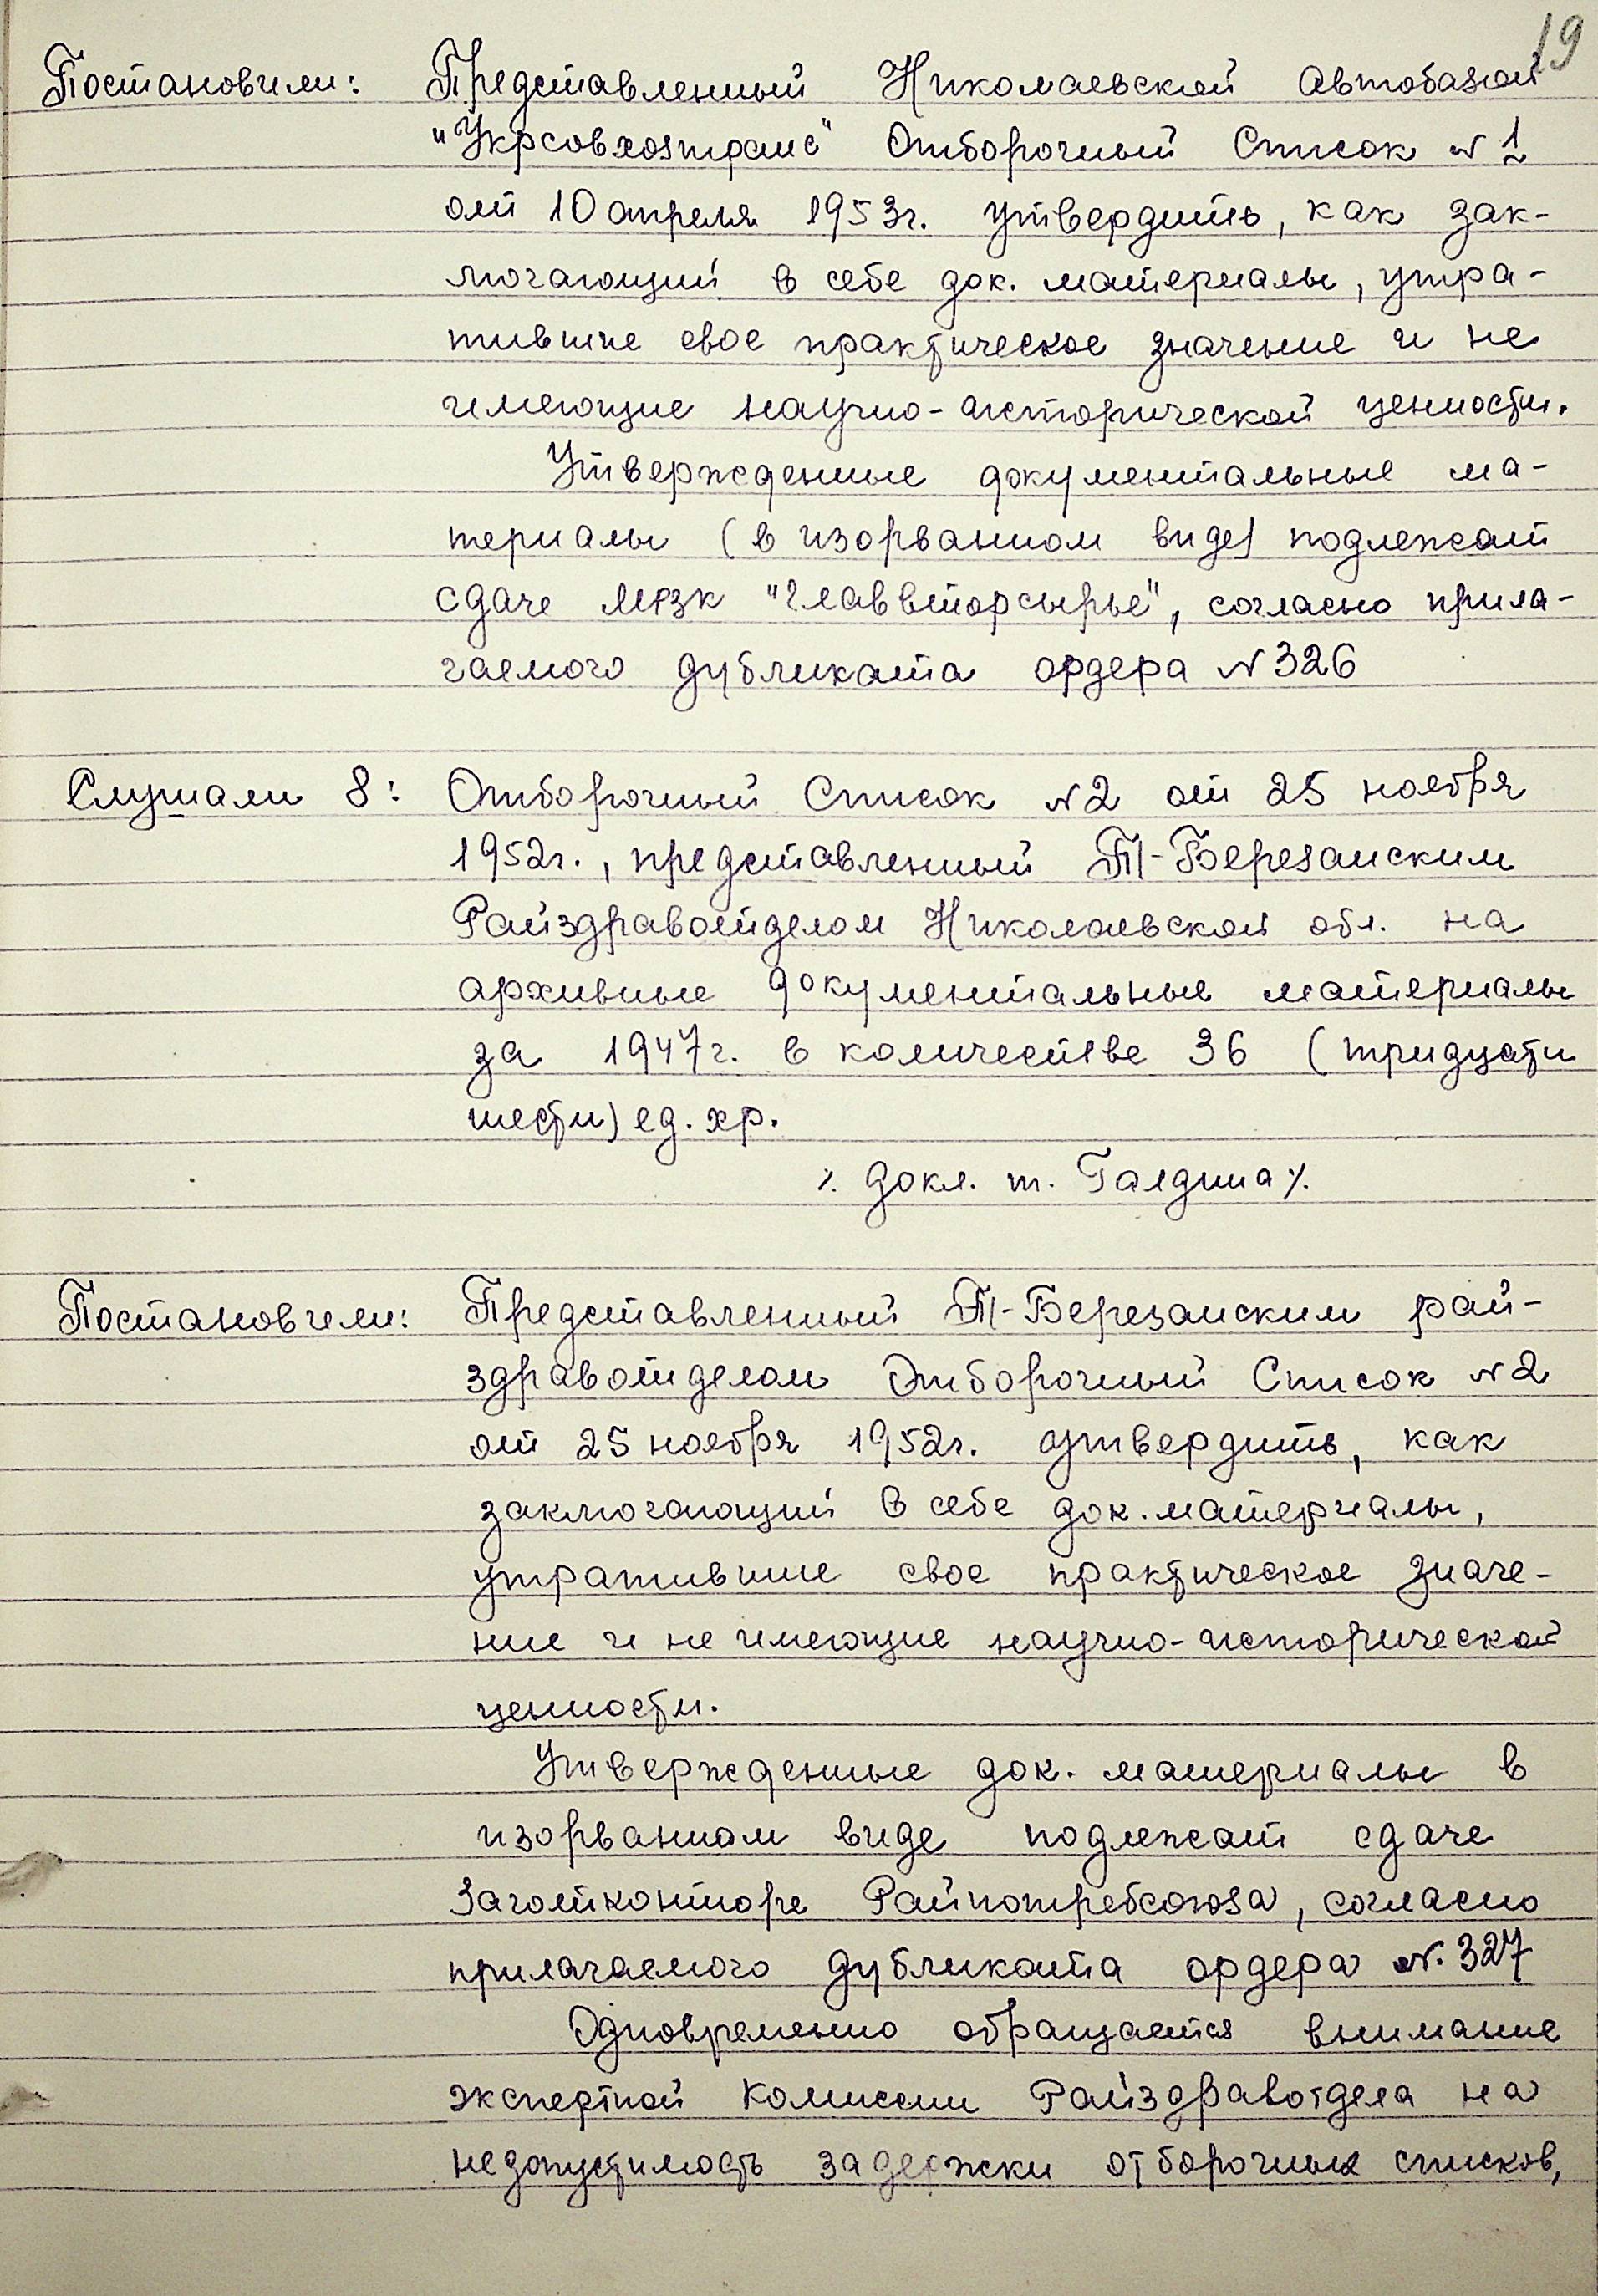 19
Постановили: Представленный Николаевской Автобазой
"Укрсовхозтранс" Отборочный Список №1
от 10 апреля 1953г. утвердить, как зак-
лючающий в себе док. материалы, утра-
тившие свое практическое значение и не
имеющие научно-исторической ценности.
Утвержденные документальные ма-
териалы (в изорванном виде) подлежат
сдаче МРЗК "Главвторсырье", согласно прила-
гаемого дубликата ордера №326
Слушали 8: Отборочный Список №2 от 25 ноября
1952г., представленный Т-Березанским
Райздравотделом Николаевской обл. на
архивные документальные материалы
за 1947г. в количестве 36 (тридцати
шести) ед. хр.
/. докл. т. Галдина /.
Постановили: Представленный Т-Березанским рай-
здравотделом Отборочный Список №2
от 25 ноября 1952г. утвердить, как
заключающий в себе док. материалы,
утратившие свое практическое значе-
ние и не имеющие научно-исторической
ценности.
Утвержденные док. материалы в
изорванном виде подлежат сдаче
Заготконторе Райпотребсоюза, согласно
прилагаемого дубликата ордера №.327
Одновременно обращается внимание
экспертной Комиссии Райздравотдела на
недопустимость задержки отборочных списков,